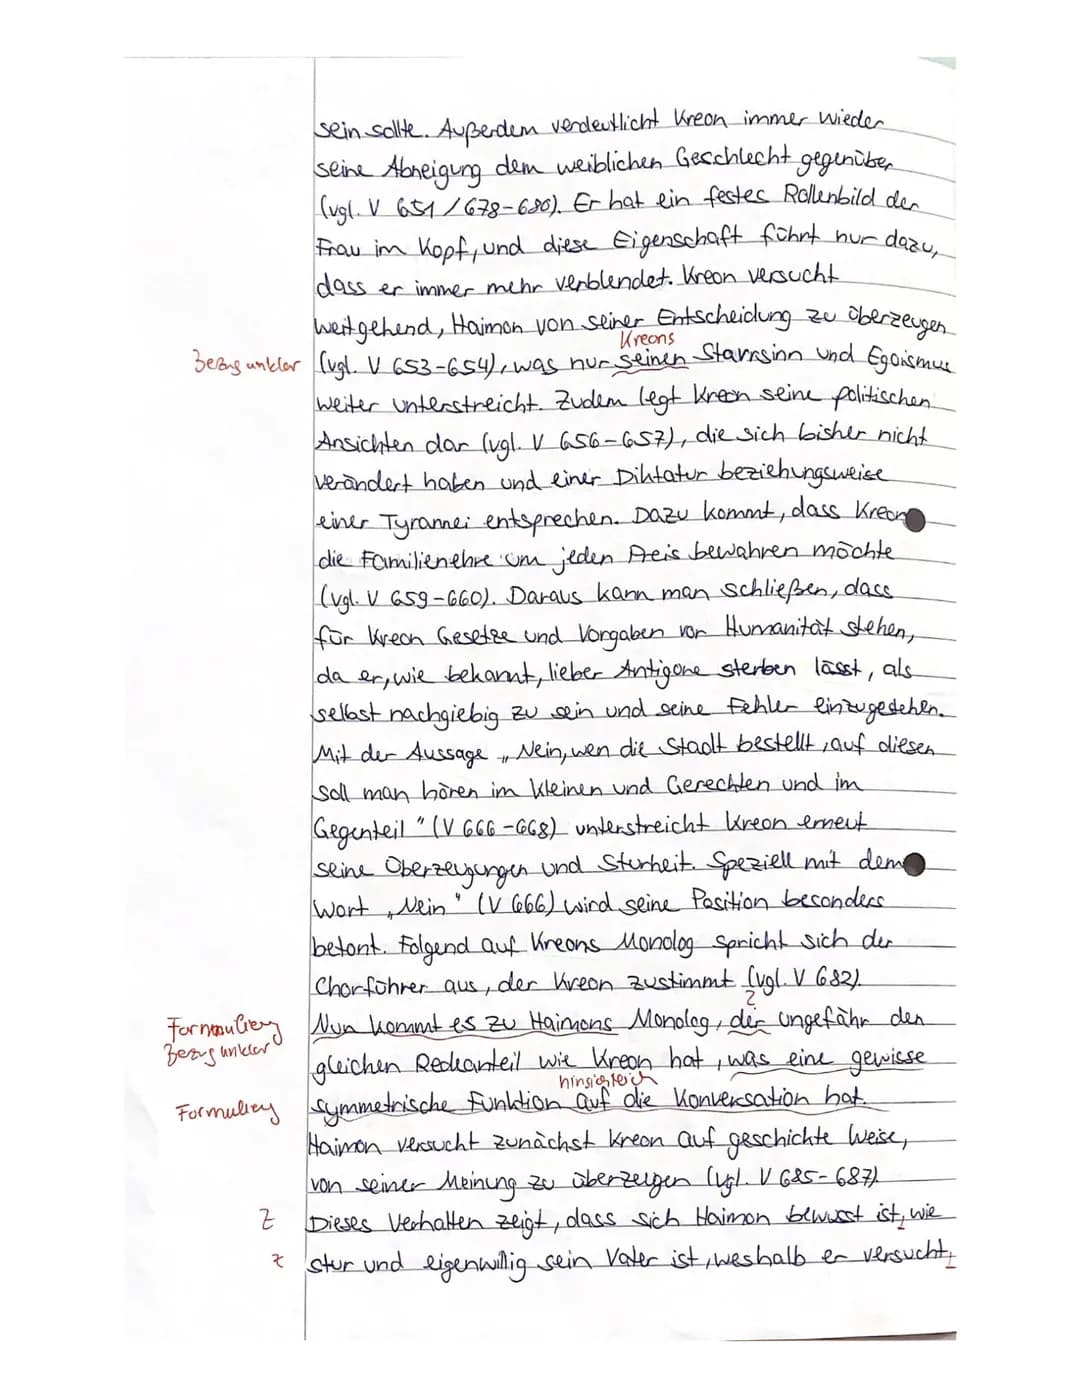 sein sollte. Außerdem verdeutlicht Kreon immer wieder
seine Abneigung dem weiblichen Geschlecht gegenüber
(vgl. V 651/678-680). Er hat ein festes Rollenbild der
Frau im Kopf, und diese Eigenschaft führt nur dazu,
dass er immer mehr verblendet. Kreon versucht
weitgehend, Haimon von seiner Entscheidung zu überzeugen
Kreons
Bezug unklar (vgl. V 653-654), was nur seinen Starrsinn und Egoismus
weiter unterstreicht. Zudem legt Kreon seine politischen
Ansichten dar (vgl. V 656-657), die sich bisher nicht
verändert haben und einer Diktatur beziehungsweise
einer Tyrannei entsprechen. Dazu kommt, dass Kreon
die Familienehre um jeden Preis bewahren möchte
(vgl. V 659-660). Daraus kann man schließen, dass
für Kreon Gesetze und Vorgaben vor Humanität stehen,
da er, wie bekannt, lieber Antigone sterben lässt, als
selbst nachgiebig zu sein und seine Fehler einzugestehen.
Mit der Aussage „Nein, wen die Stadt bestellt, auf diesen
soll man hören im Kleinen und Gerechten und im
Gegenteil" (V 666-668) unterstreicht Kreon erneut
seine Überzeugungen und Sturheit. Speziell mit dem
Wort „Nein" (V 666) wird seine Position besonders
betont. Folgend auf Kreons Monolog spricht sich der
Chorführer aus, der Kreon zustimmt (vgl. V 682).
?
Formulierg Nun kommt es zu Haimons Monolog, der ungefähr den
Bezug unklar
gleichen Redeanteil wie Kreon hat, was eine gewisse
hinsichtlich
Formulierg symmetrische Funktion auf die Konversation hat.
Haimon versucht zunächst Kreon auf geschichte Weise,
von seiner Meinung zu überzeugen (vgl. V 685-687).
Z Dieses Verhalten zeigt, dass sich Haimon bewusst ist, wie
Z stur und eigenwillig sein Vater ist, weshalb er versucht,